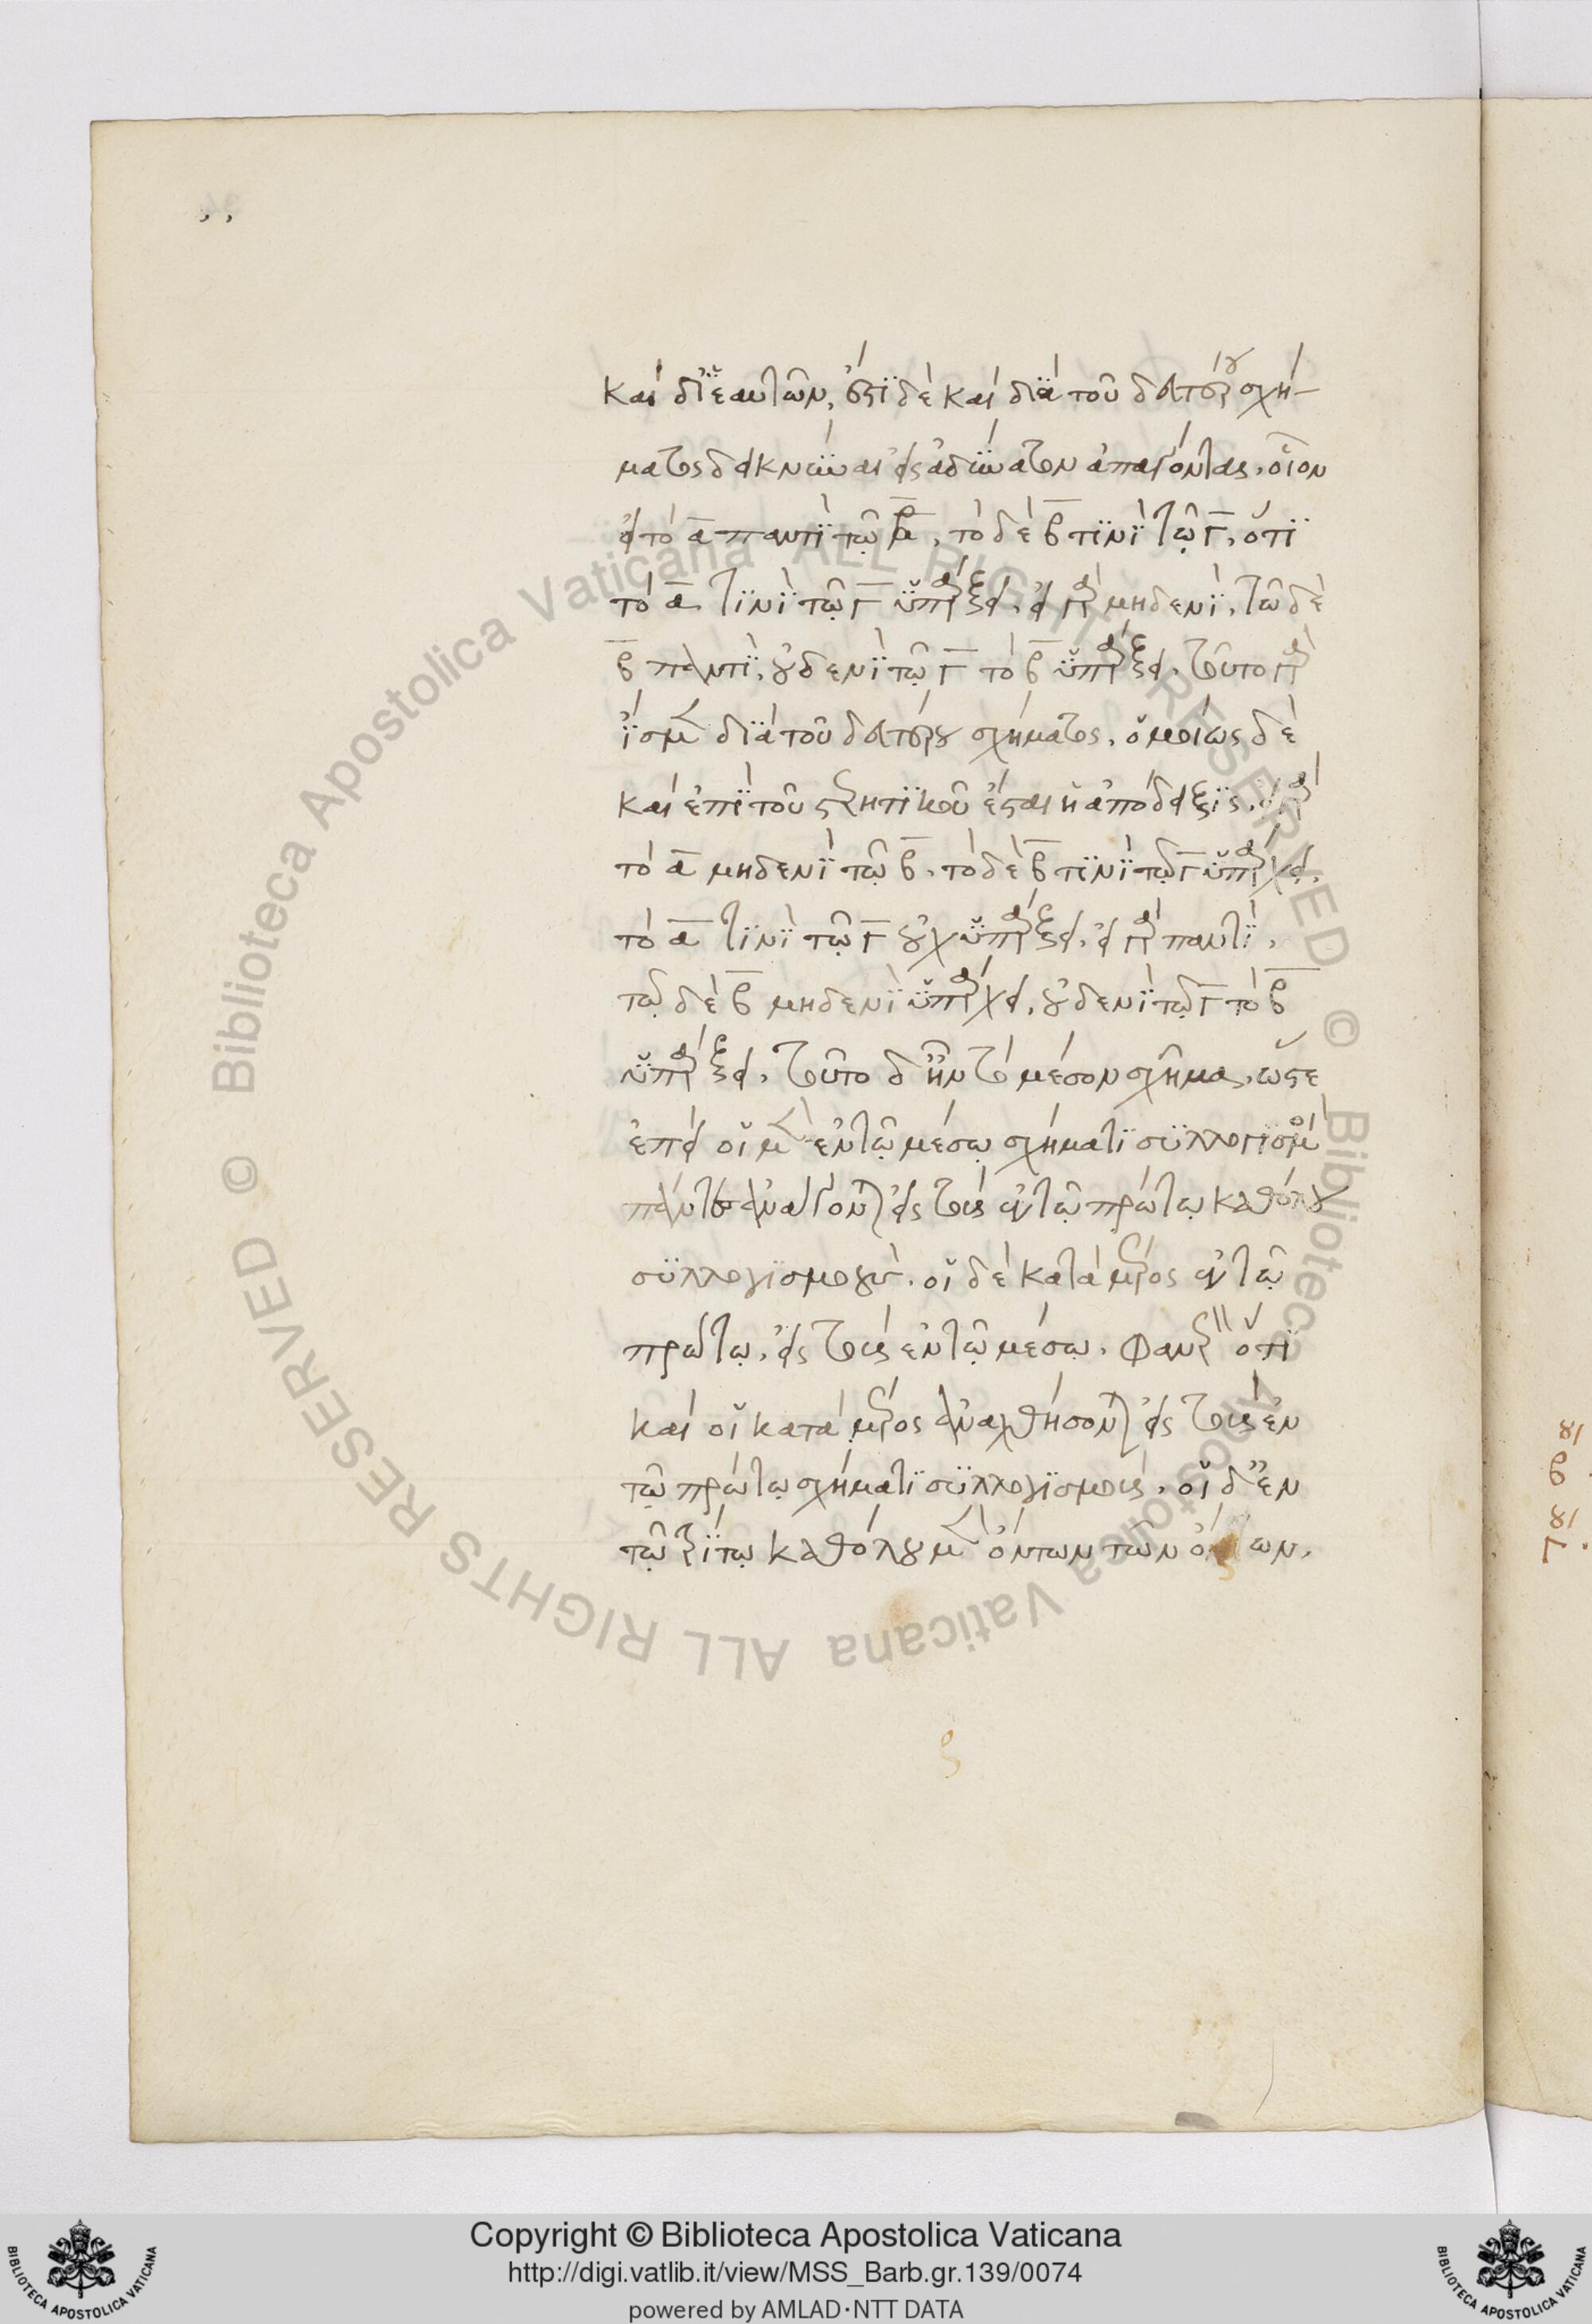 καὶ δι' ἑαυτῶν, ἔστι δὲ καὶ διὰ τοῦ δευτέρου σχή-
ματος δεικνύναι εἰς ἀδύνατον ἀπαγόντας. οἷον
εἰ τὸ α παντὶ τῷ β, τὸ δὲ β τινὶ τῷ γ, ὅτι
τὸ α τινὶ τῷ γ ὑπάρξει. εἰ γὰρ μηδενὶ, τῷ δὲ
β παντὶ, οὐδενὶ τῷ γ τὸ β ὑπάρξει. τοῦτο γὰρ
ἴσμεν διὰ τοῦ δευτέρου σχήματος. ὁμοίως δὲ
καὶ ἐπὶ τοῦ στερητικοῦ ἔσται ἡ ἀπόδειξις. εἰ γὰρ
τὸ α μηδενὶ τῷ β. τὸ δὲ β τινὶ τῷ γ ὑπάρχει.
τὸ α τινὶ τῷ γ οὐχ ὑπάρξει. εἰ γὰρ παντὶ,
τῷ δὲ β μηδενὶ ὑπάρχει, οὐδενὶ τῷ γ τὸ β
ὑπάρξει. τοῦτο δ' ἦν τὸ μέσον σχῆμα. ὥστε
ἐπεὶ οἱ μὲν ἐν τῷ μέσῳ σχήματι συλλογισμοὶ
πάντες ἀνάγονται εἰς τοὺς ἐν τῷ πρώτῳ καθόλου
συλλογισμοὺς. οἱ δὲ κατὰ μέρος ἐν τῷ
πρώτῳ, εἰς τοὺς ἐν τῷ μέσῳ. φανερὸν ὅτι
καὶ οἱ κατὰ μέρος ἀναχθήσονται εἰς τοὺς ἐν
τῷ πρώτῳ σχήματι συλλογισμοὺς. οἱ δ' ἐν
τῷ τρίτῳ καθόλου μὲν ὄντων τῶν ὅρων.
Copyright © Biblioteca Apostolica Vaticana
http://digi.vatlib.it/view/MSS_Barb.gr.139/0074
powered by AMLAD·NTT DATA
BIBLIOTECA APOSTOLICA VATICANA
BIBLIOTECA APOSTOLICA VATICANA
© Biblioteca Apostolica Vaticana ALL RIGHTS RESERVED © Biblioteca Apostolica Vaticana ALL RIGHTS RESERVED